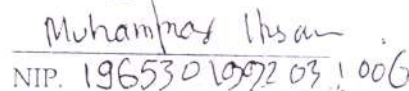 Muhammad Ihsan
NIP. 19653019920311006